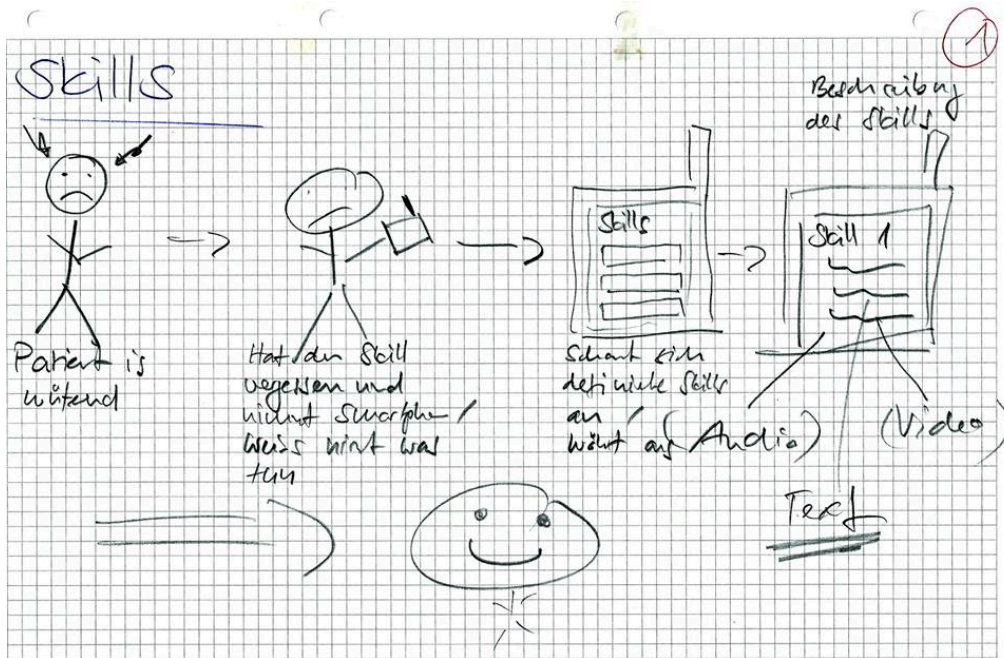 1
Skills
Beschreibung
des Skills
Skills
Skill 1
Patient is
wütend
Hat den Skill
vegessen und
nimmt Smartphone /
weiss nicht was
tun
Schaut sich
definierte Skills
an /
wählt aus
(Audio)
(Video)
Text